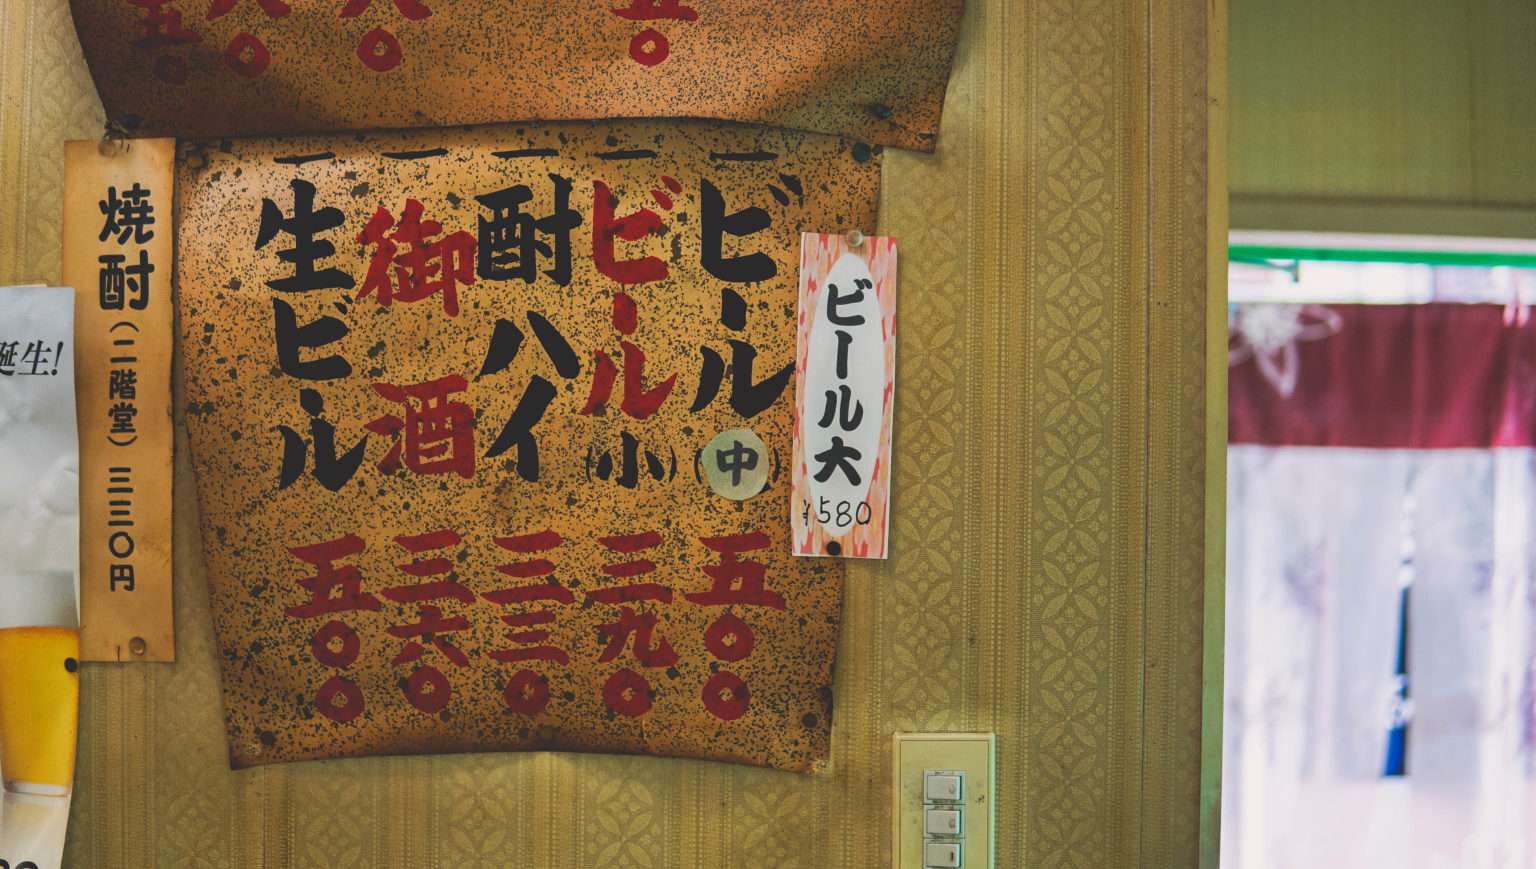 五〇
ビール大
¥580
一ビール(中) 五〇〇
一ビール(小) 三九〇
一酎ハイ 三三〇
一御酒 三六〇
一生ビール 五〇〇
焼酎(二階堂) 三三〇円
誕生!